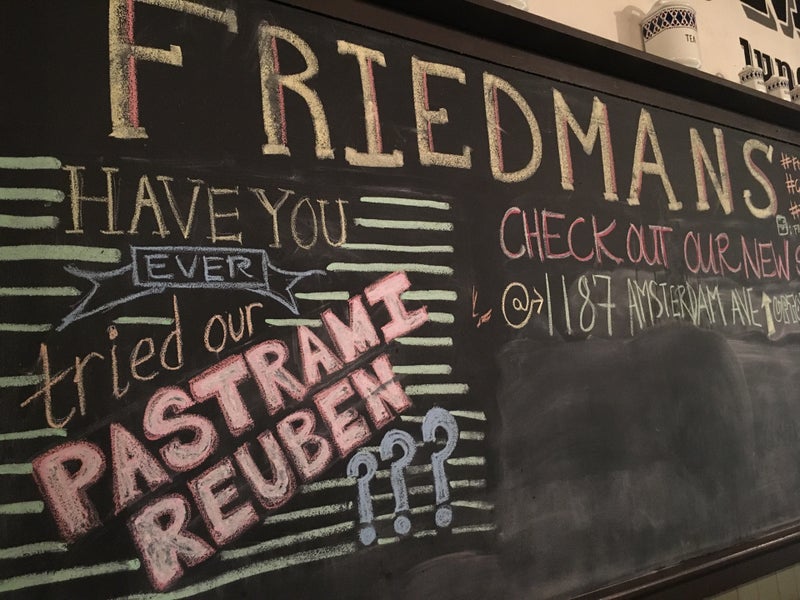 TEA
FRIEDMANS
HAVE YOU
EVER
tried our
PASTRAMI
REUBEN
???
CHECK OUT OUR NEW
@→ 1187 AMSTERDAM AVE ↑